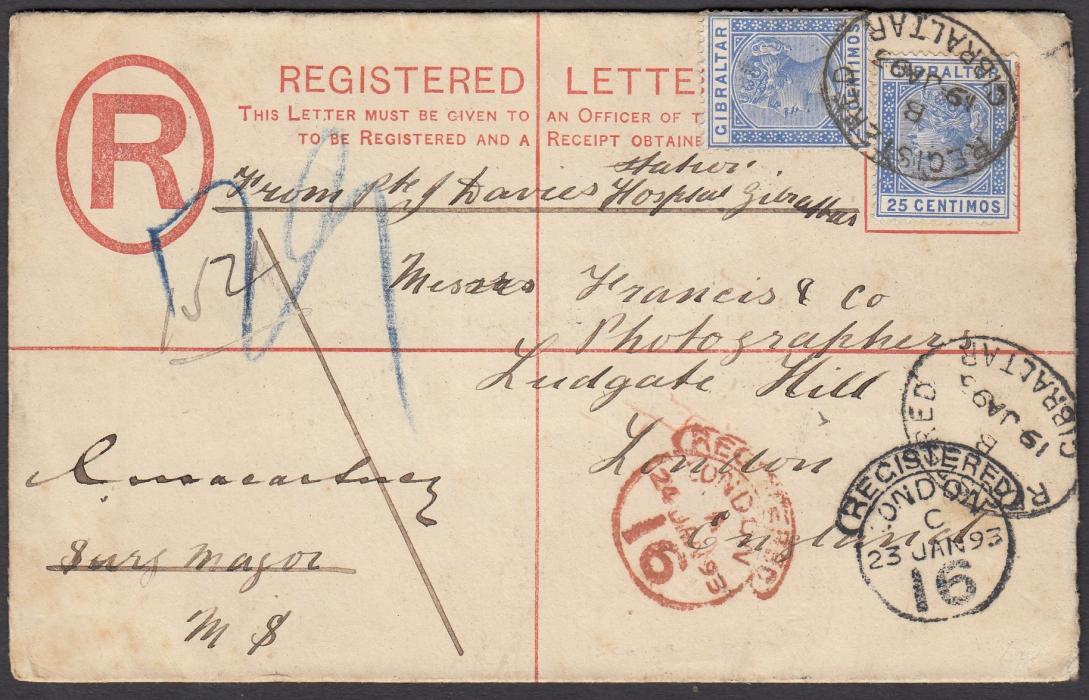 REGISTERED LETTE
THIS LETTER MUST BE GIVEN TO AN OFFICER OF T
TO BE REGISTERED AND A RECEIPT OBTAINE
R
GIBRALTAR
TIMOS
GIBRALTAR
25 CENTIMOS
REGISTERED
B
19 JA 93
GIBRALTAR
From Pte J Davies Station Hospital Gibraltar
Messrs Francis & Co
Photographers
Ludgate Hill
London
England
Surg Major
M S
RED
B
19 JA 93
GIBRALTAR
REGISTERED
LONDON
24 JAN 93
16
REGISTERED
LONDON
C
23 JAN 93
16